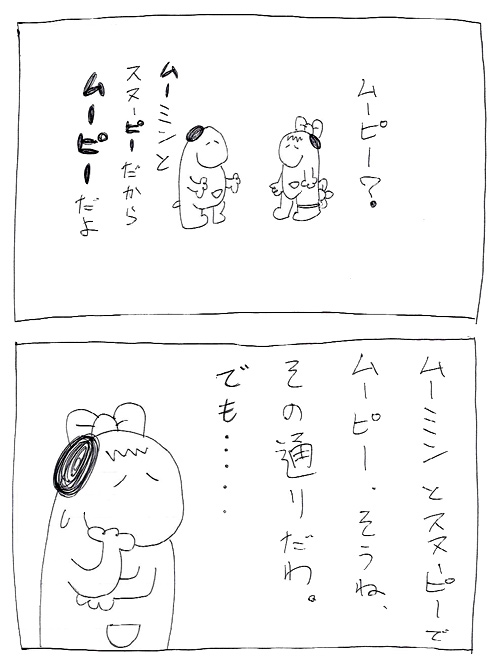 ムーピー？
ムーミンと
スヌーピーだから
ムーピーだよ
ムーミンとスヌーピーで
ムーピー．そうね、
その通りだわ。
でも・・・・・